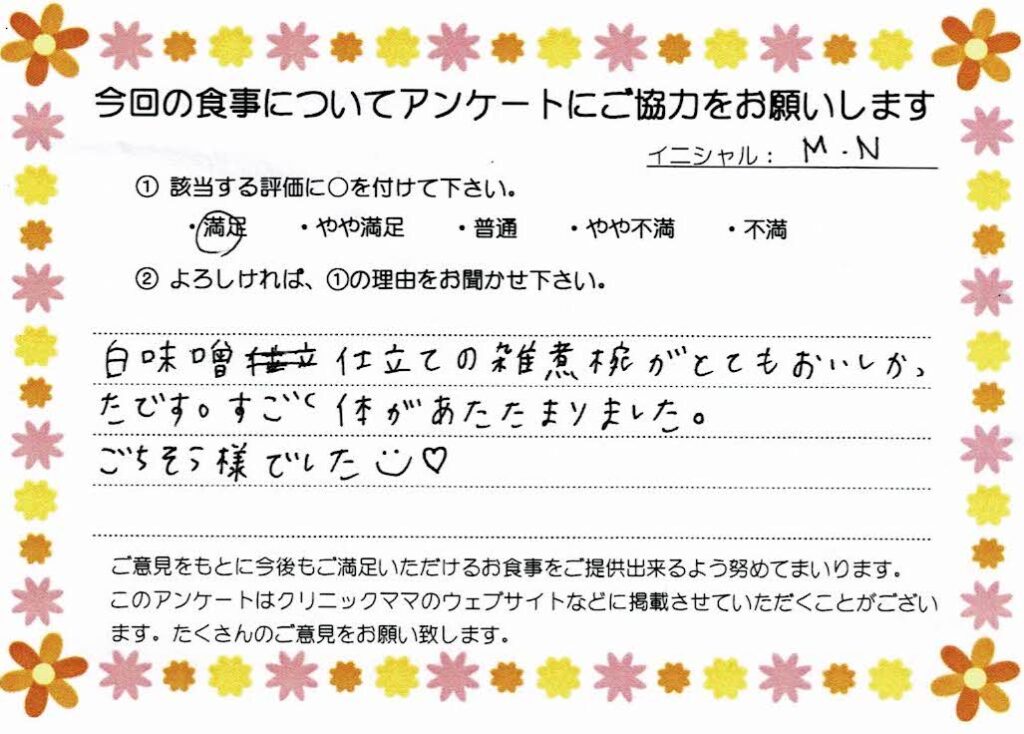 今回の食事についてアンケートにご協力をお願いします
イニシャル： M.N
① 該当する評価に〇を付けて下さい。
・満足 ・やや満足 ・普通 ・やや不満 ・不満
② よろしければ、①の理由をお聞かせ下さい。
白味噌仕立仕立ての雑煮椀がとてもおいしかっ
たです。すごく体があたたまりました。
ごちそう様でした♡
ご意見をもとに今後もご満足いただけるお食事をご提供出来るよう努めてまいります。
このアンケートはクリニックママのウェブサイトなどに掲載させていただくことがござい
ます。たくさんのご意見をお願い致します。